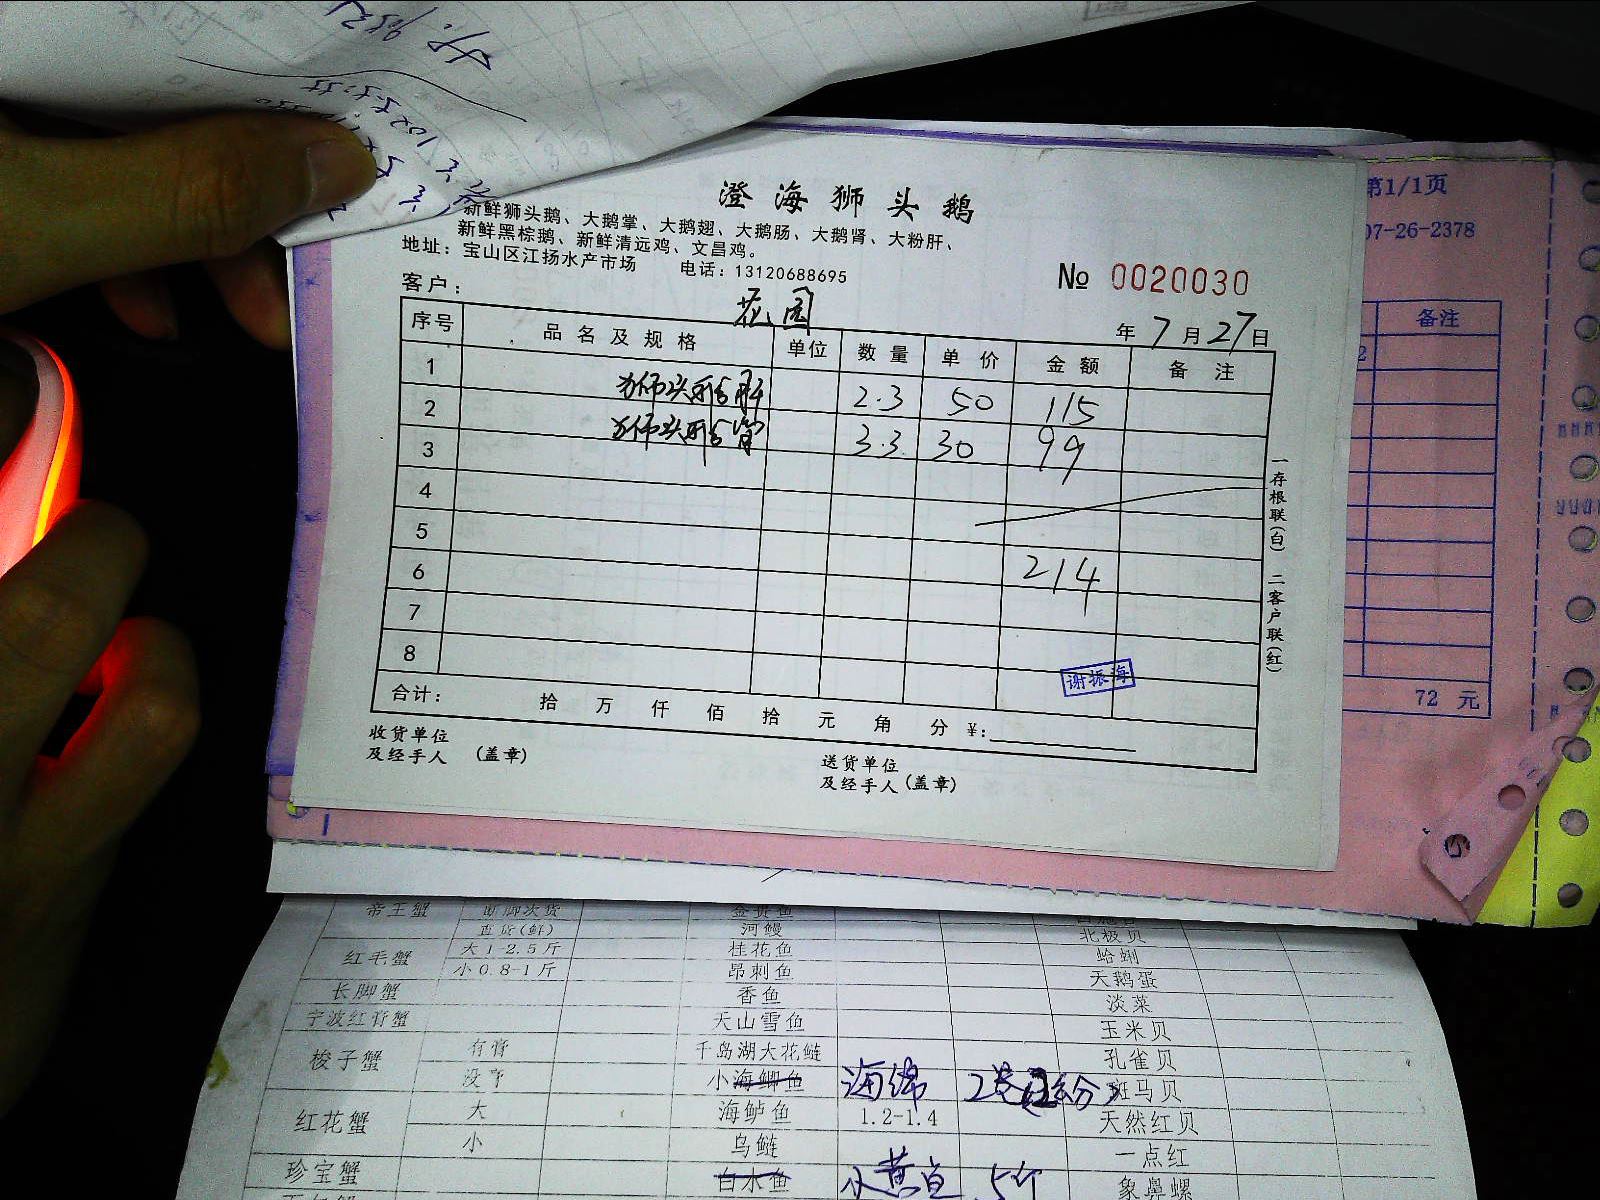 澄海狮头鹅
新鲜狮头鹅、大鹅掌、大鹅翅、大鹅肠、大鹅肾、大粉肝、
新鲜黑棕鹅、新鲜清远鸡、文昌鸡。
地址：宝山区江扬水产市场 电话：13120688695
№ 0020030
客户： 花园
年 7 月 27 日
序号 品名及规格 单位 数量 单价 金额 备注
1 狮头鹅肝 2.3 50 115
2 狮头鹅 3.3 30 99
3
4
5
6 214
7
8
谢振海
合计： 拾 万 仟 佰 拾 元 角 分 ¥:
收货单位
及经手人 (盖章)
送货单位
及经手人(盖章)
一存根联(白) 二客户联(红)
第1/1页
07-26-2378
备注
72 元
帝王蟹 断脚次货 金贵鱼
直货(鲜) 河鳗 北极贝
红毛蟹 大1-2.5斤 桂花鱼 蛤蜊
小0.8-1斤 昂刺鱼 天鹅蛋
长脚蟹 香鱼 淡菜
宁波红膏蟹 天山雪鱼 玉米贝
梭子蟹 有膏 千岛湖大花鲢 孔雀贝
没膏 小海鲫鱼 海绵 斑马贝
红花蟹 大 海鲈鱼 1.2-1.4 天然红贝
小 乌鲢 一点红
珍宝蟹 白水鱼 小黄鱼 5斤 象鼻螺